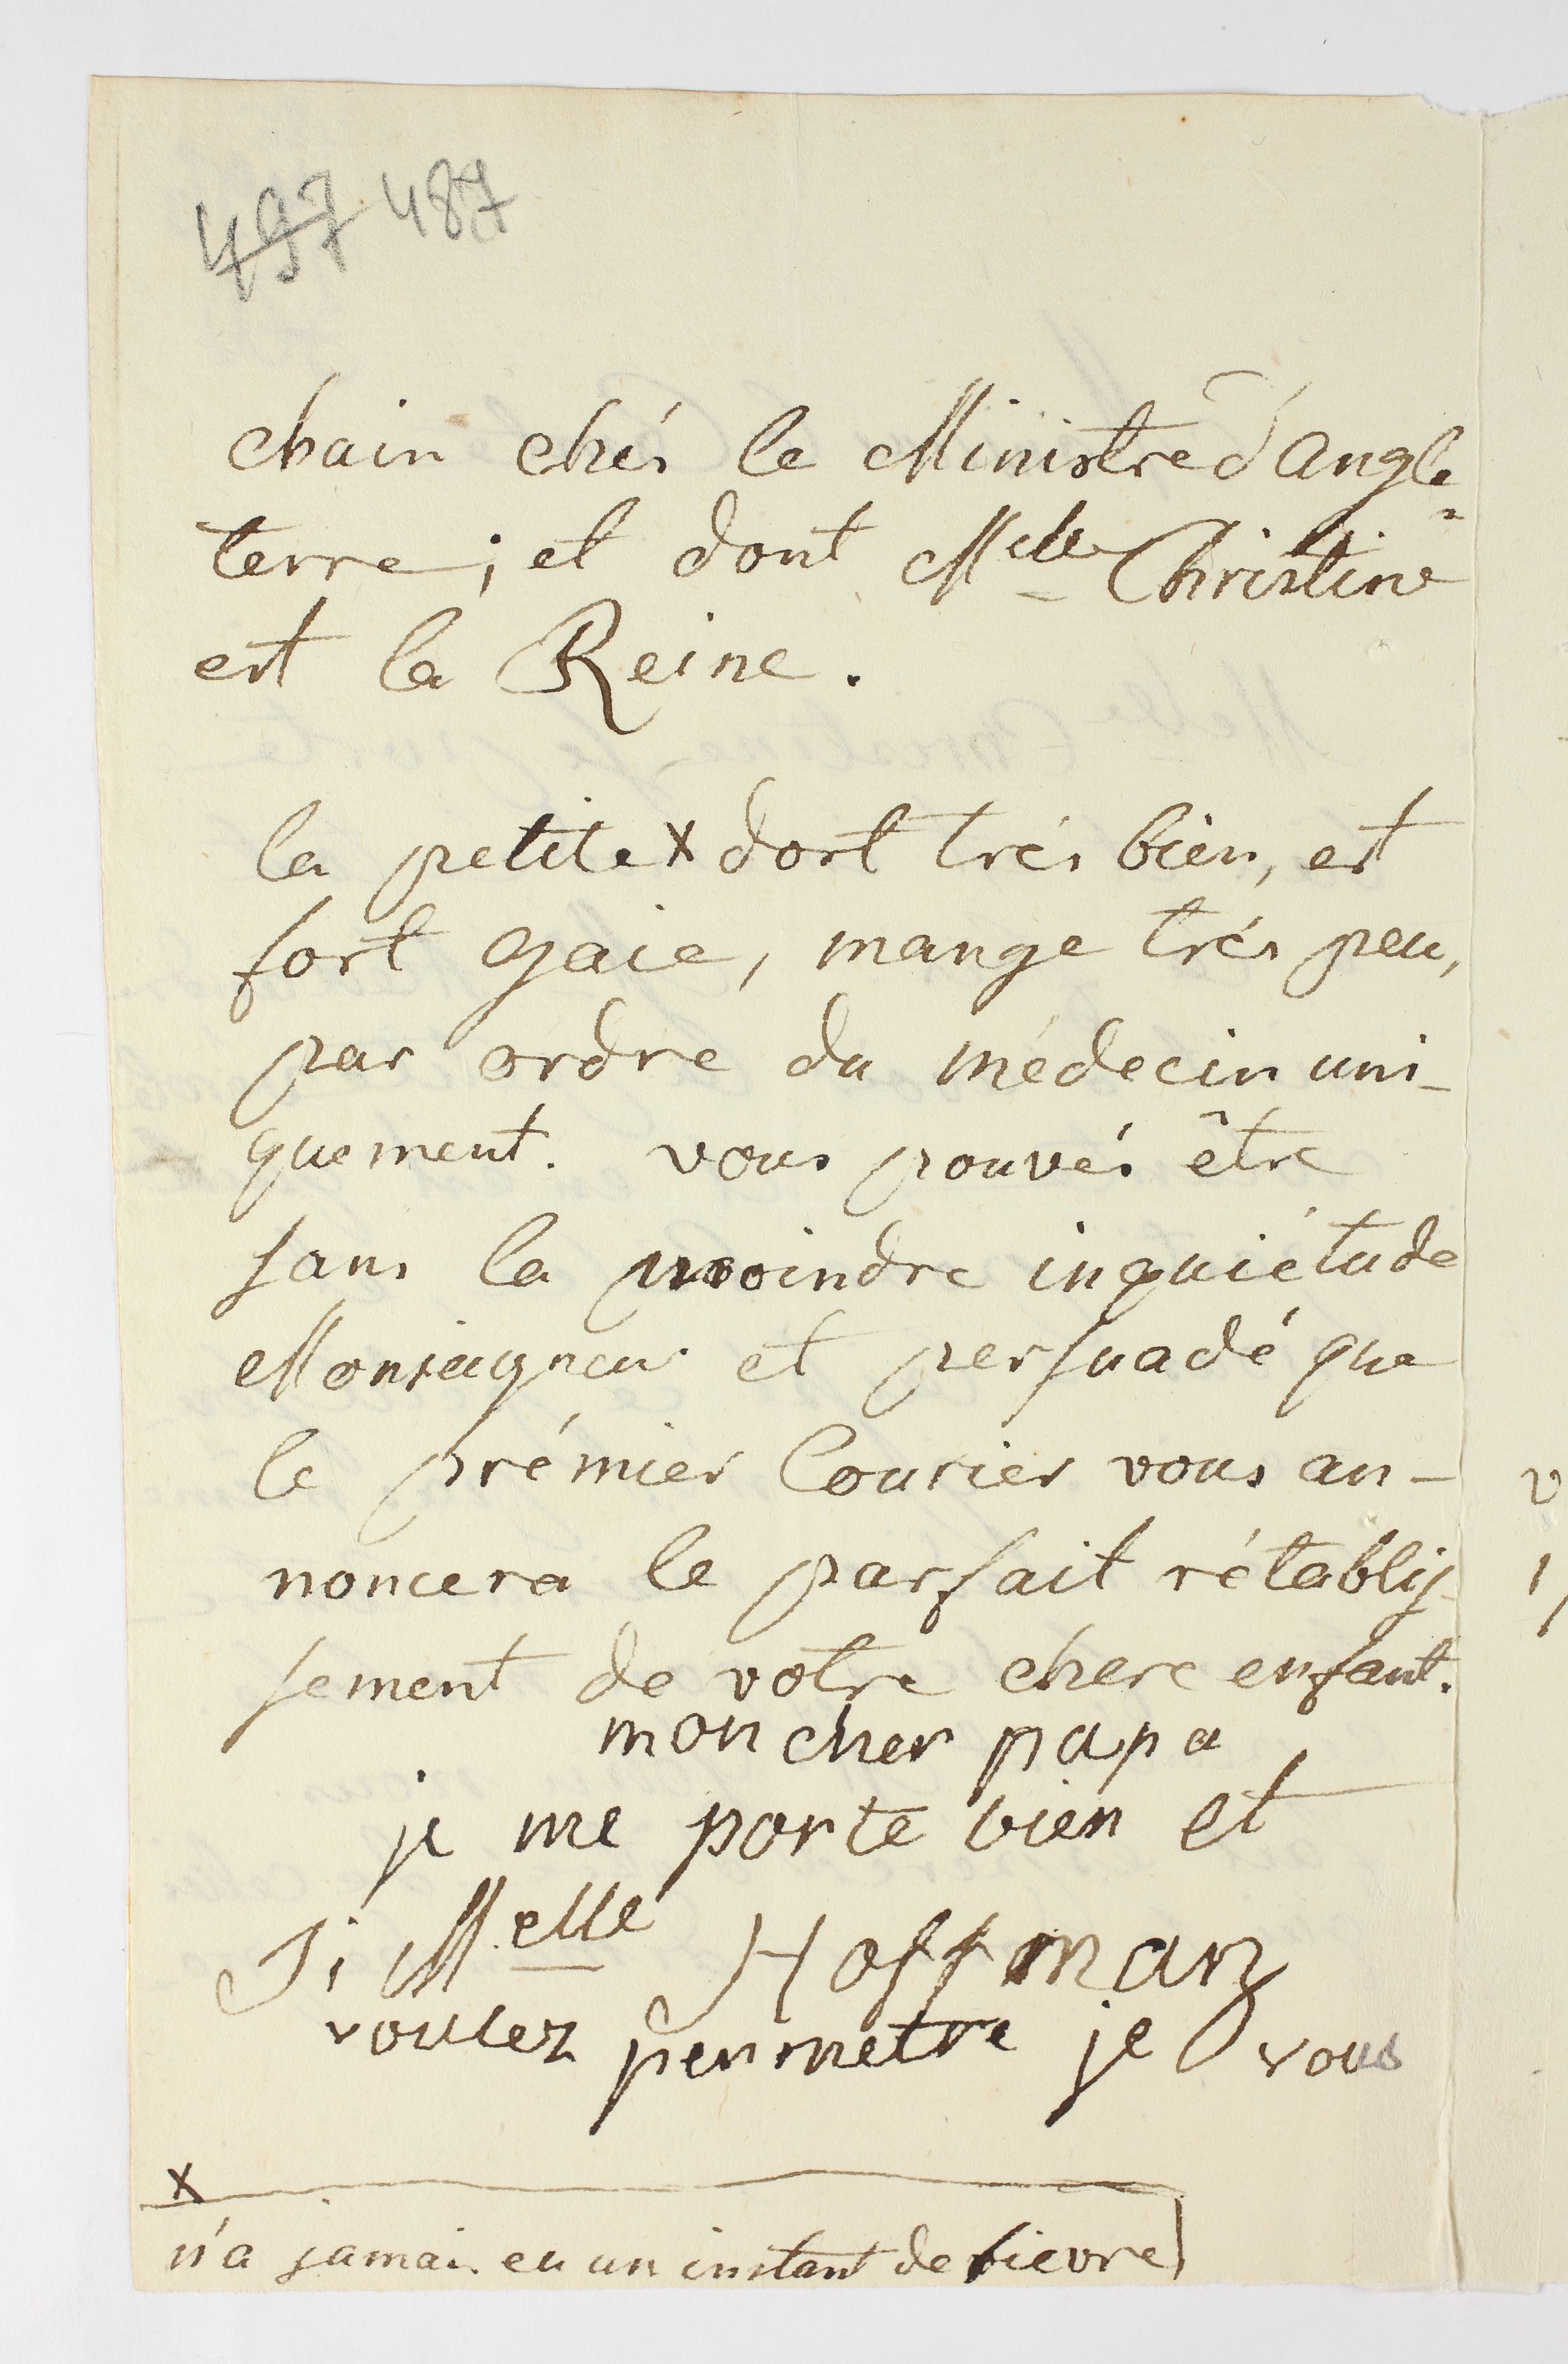 497 487
chain chés le Ministre d'angle=
terre; et dont Melle Christine
est la Reine.
la petite x dort trés bien, est
fort gaie, mange trés peu,
par ordre du médecin uni-
quement. vous pouvés être
sans la moindre inquiétude
Monseigneur et persuadé que
le prémier Courier vous an-
noncera le parfait rétablis-
sement de votre chere enfant.
mon cher papa
je me porte bien et
Si Melle Hoffman
voulez permetre je vous
x
n'a jamais eu un instant de fievre